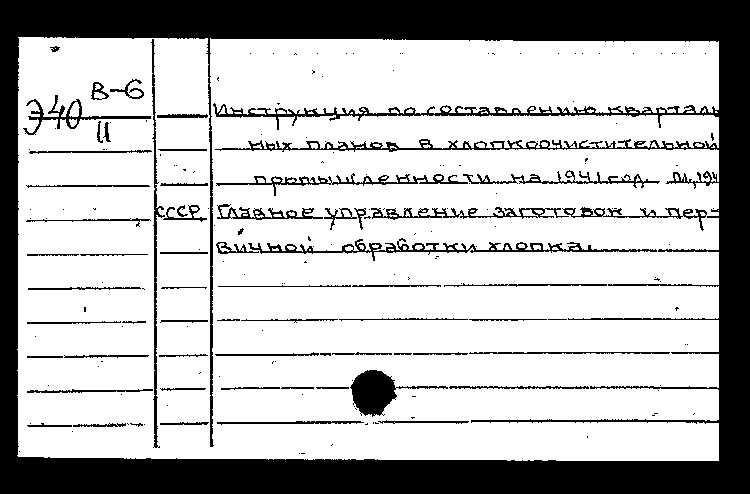 Э40 В-6
II
Инструкция по составлению кварталь
ных планов в хлопкоочистительной
промышленности на 1941 год. М., 194
СССР Главное управление заготовок и пер-
вичной обработки хлопка.